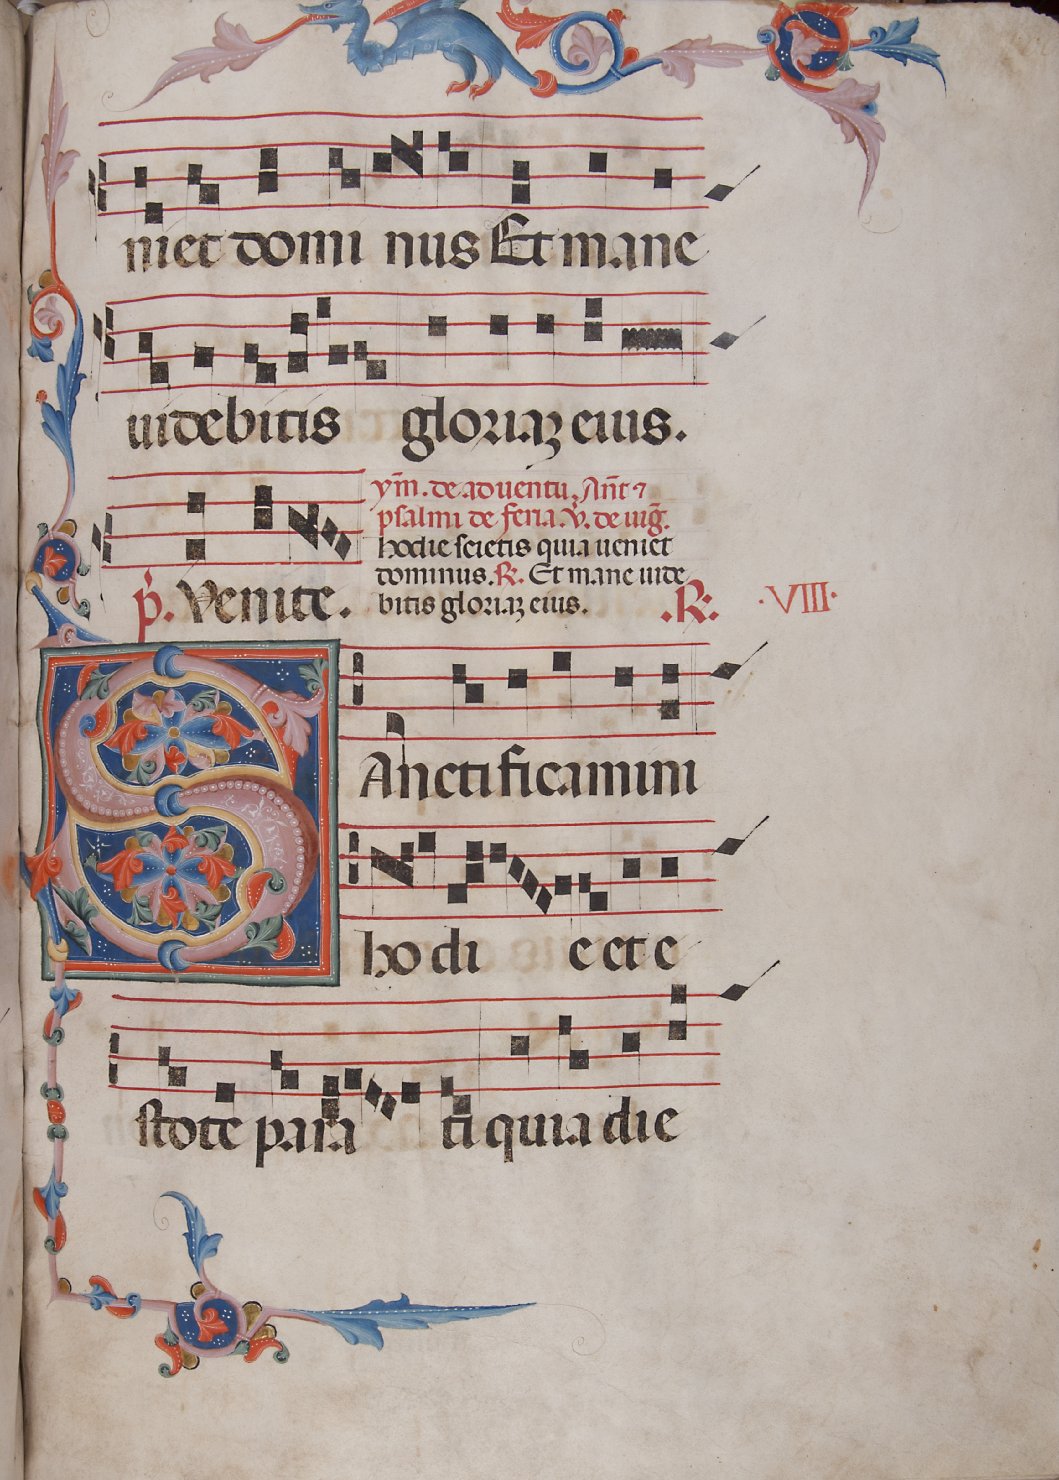 niet domi nus Et mane
uidebitis gloriaꝫ eius.
ym̄. de aduentu. Añt ⁊
psalmi de feria. V̇. de uig̃.
hodie scietis quia ueniet
dominus. R̃. Et mane uide
bitis gloriaꝫ eius. .R̃.
p̓. Venite.
.VIII.
SAncti ficamini
ho di e et e
stote para ti quia die